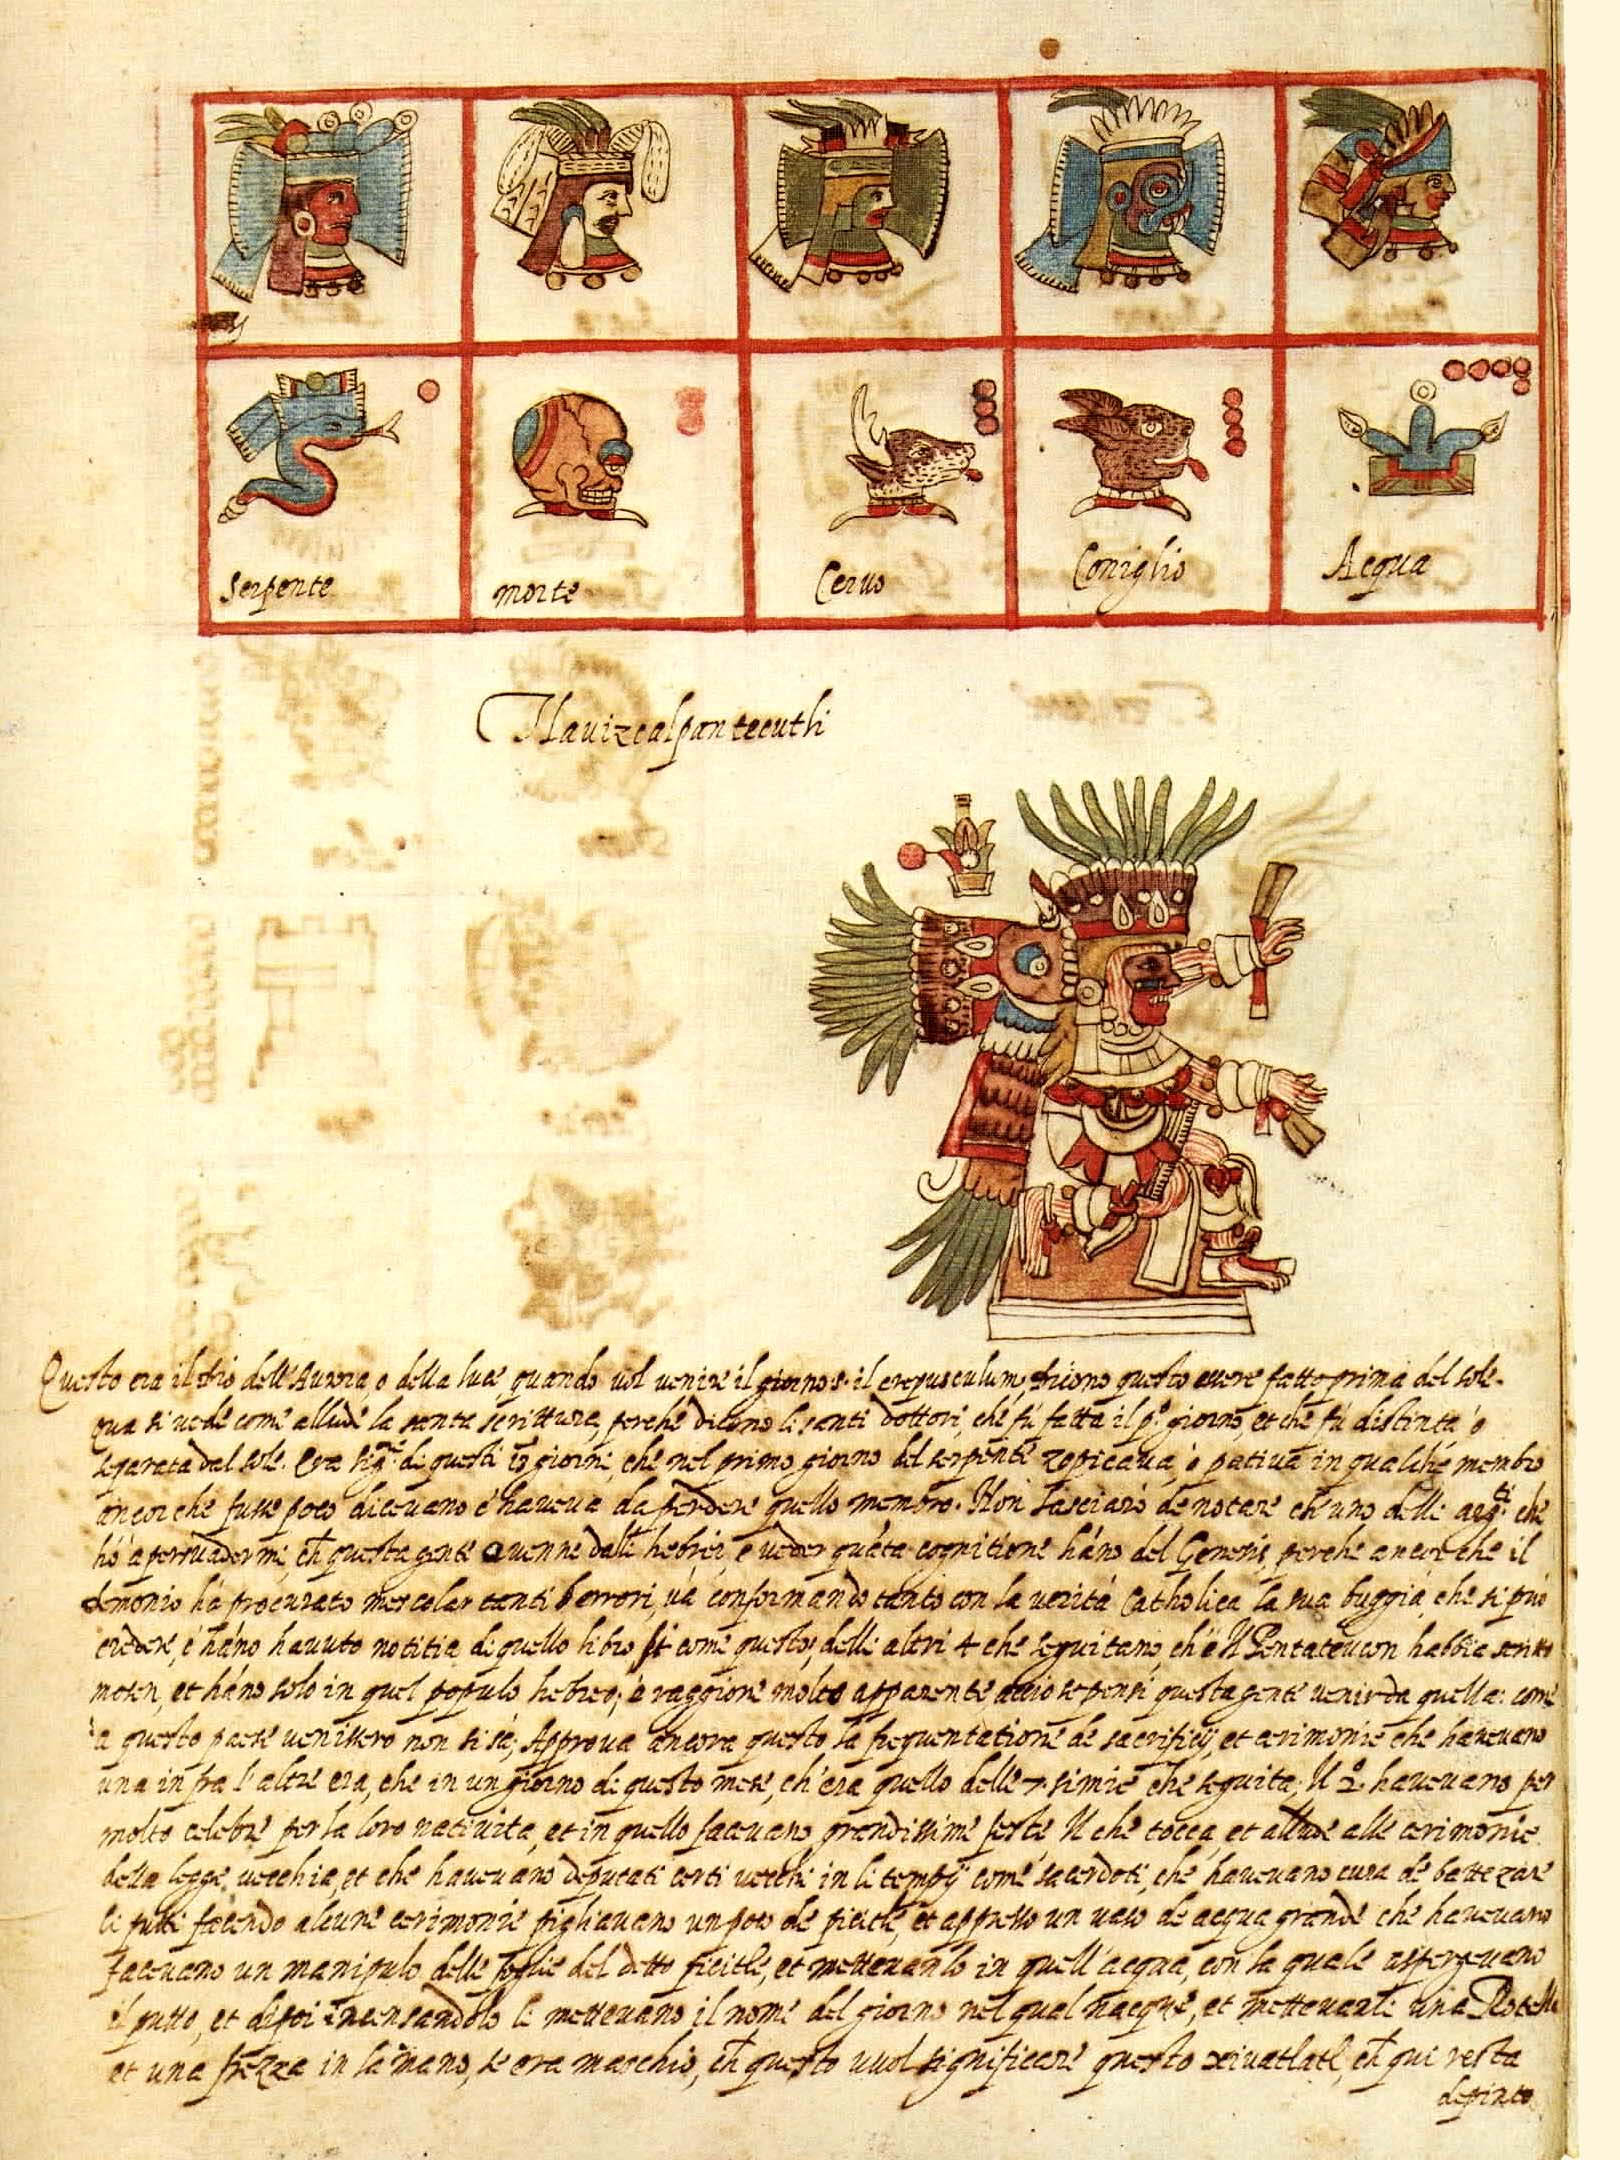 Serpente
morte
Ceruo
Coniglio
Acqua
Tlauizcalpantecutli
Questo era il Dio dell'Aurora, o della luce, quando uol uenire il giorno, il crepusculum, dicono questo auere fatto prima del sole.
qua si uede come allude la santa scrittura, perche dicono li santi dottori, che fu fatta il p.º giorno, et che fu distinta o
separata dal sole. era sig.re de questi 13 giorni, che nel primo giorno del serpente zopicaua, o patiua in qualche membro
ancor che fusse poco diceuano e haueua da perdere quello membro. Non lasciarò de notare che uno delli arg.ti che
hò a persuadermi, ch questa gente uenne dalli hebrei, e ueder quāta cognitione hāno del Genesis, perche ancor che il
demonio hà procurato mescolar tanti errori, uà conformando tanto con la uerità Catholica la sua buggia, che si può
credere, e hāno hauuto notitia di quello libro, come questo, delli altri 4 che seguitano, ch'è il Pentateucon habbia scritto
mosen, et hāno solo in quel populo hebreo, è raggione molto apparente acciò se pensi questa gente uenir da quella: come
a questo paese uenissero non si sà; Approva ancora questo la frequentatione de sacrificij, et cerimonie che haueuano
una infra l'altre era, che in un giorno de questo mese, ch'era quello delle 7 simie, che seguita, Il 2º haueuano per
molto celebre per la loro natiuita, et in quello faceuano grandissime feste Il che tocca, et allude alle cerimonie
della legge uecchia, et che haueuano deputati certi uecchi in li tempij come sacerdoti, che haueuano cura de battezare
li putti facendo alcune cerimonie pigliauano un poco de picitle, et appresso un uaso de acqua grande che haueuano
faceuano un manipulo delle foglie del detto picitle, et metteuanlo in quell'acqua, con la quale asperzeuano
il putto, et dipoi incensandolo li metteuano il nome del giorno nel qual nacque, et metteuanli una Rotella
et una frezza in la mano, se era maschio, ch questo uuol significare questo xiuatlatl, ch qui resta
depinto